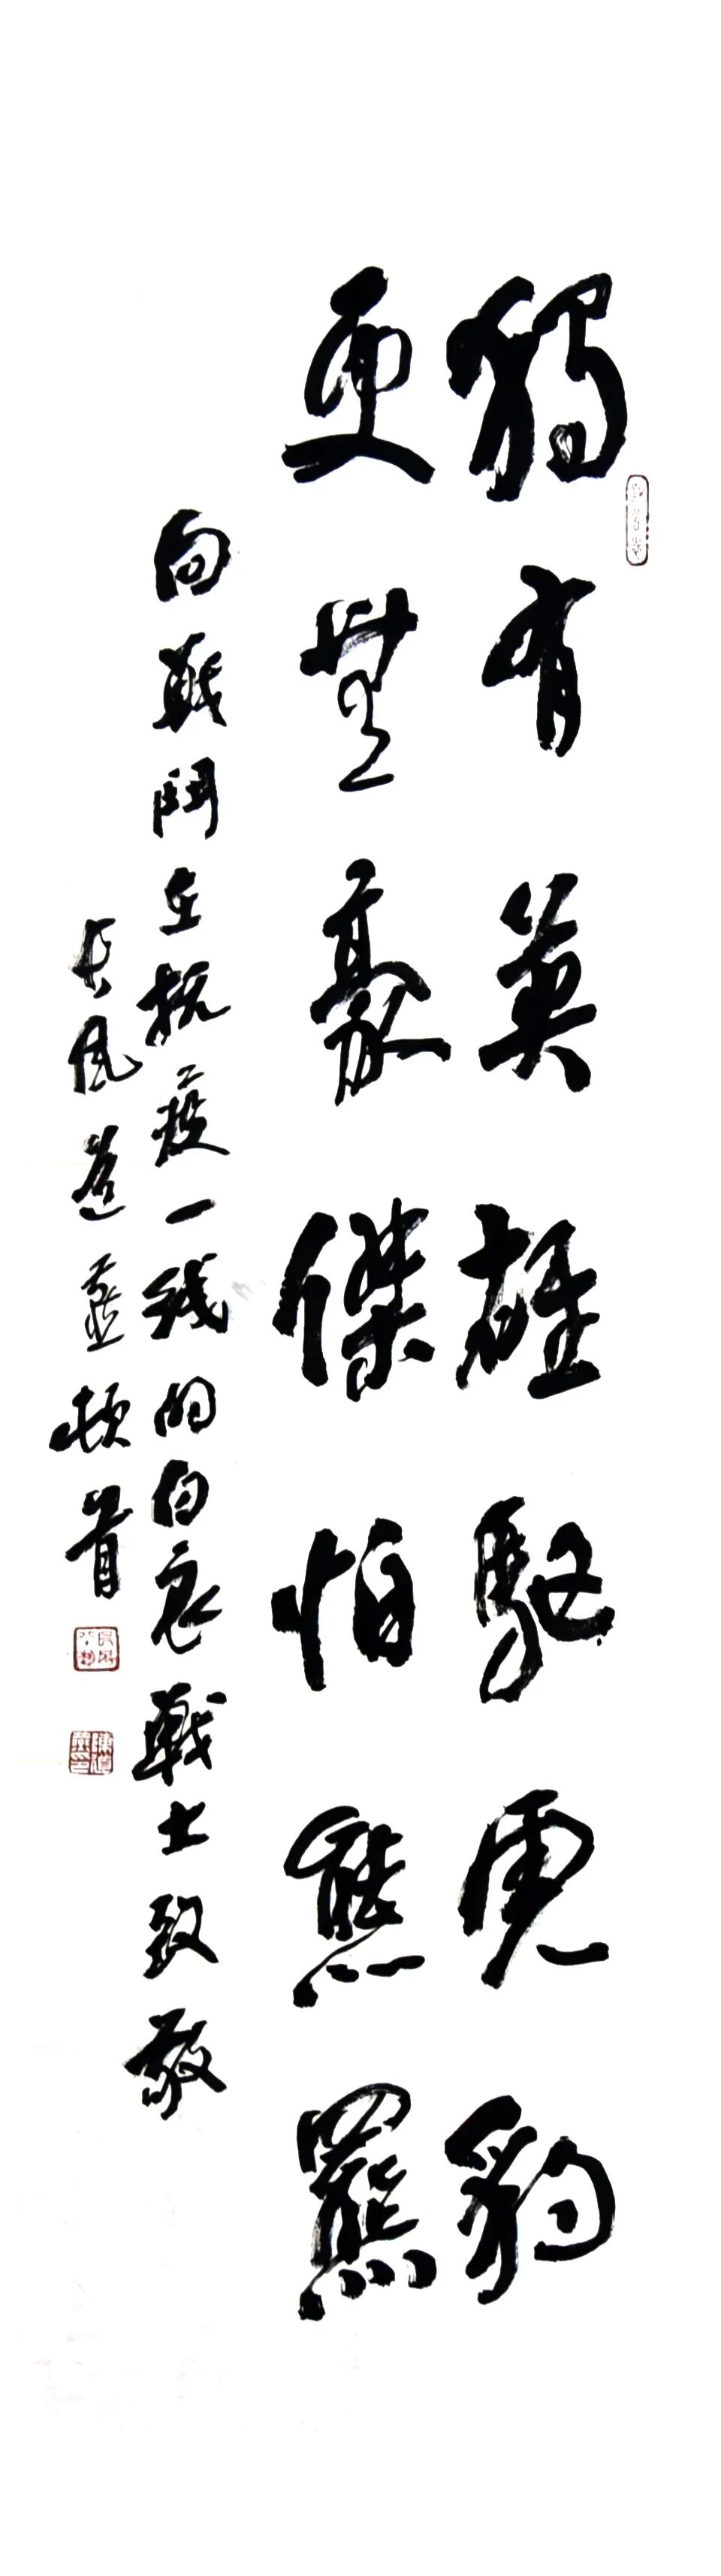 獨有英雄驅虎豹
更無豪傑怕熊羆
向戰鬥在抗疫一线的白衣戰士致敬
长风道頓首